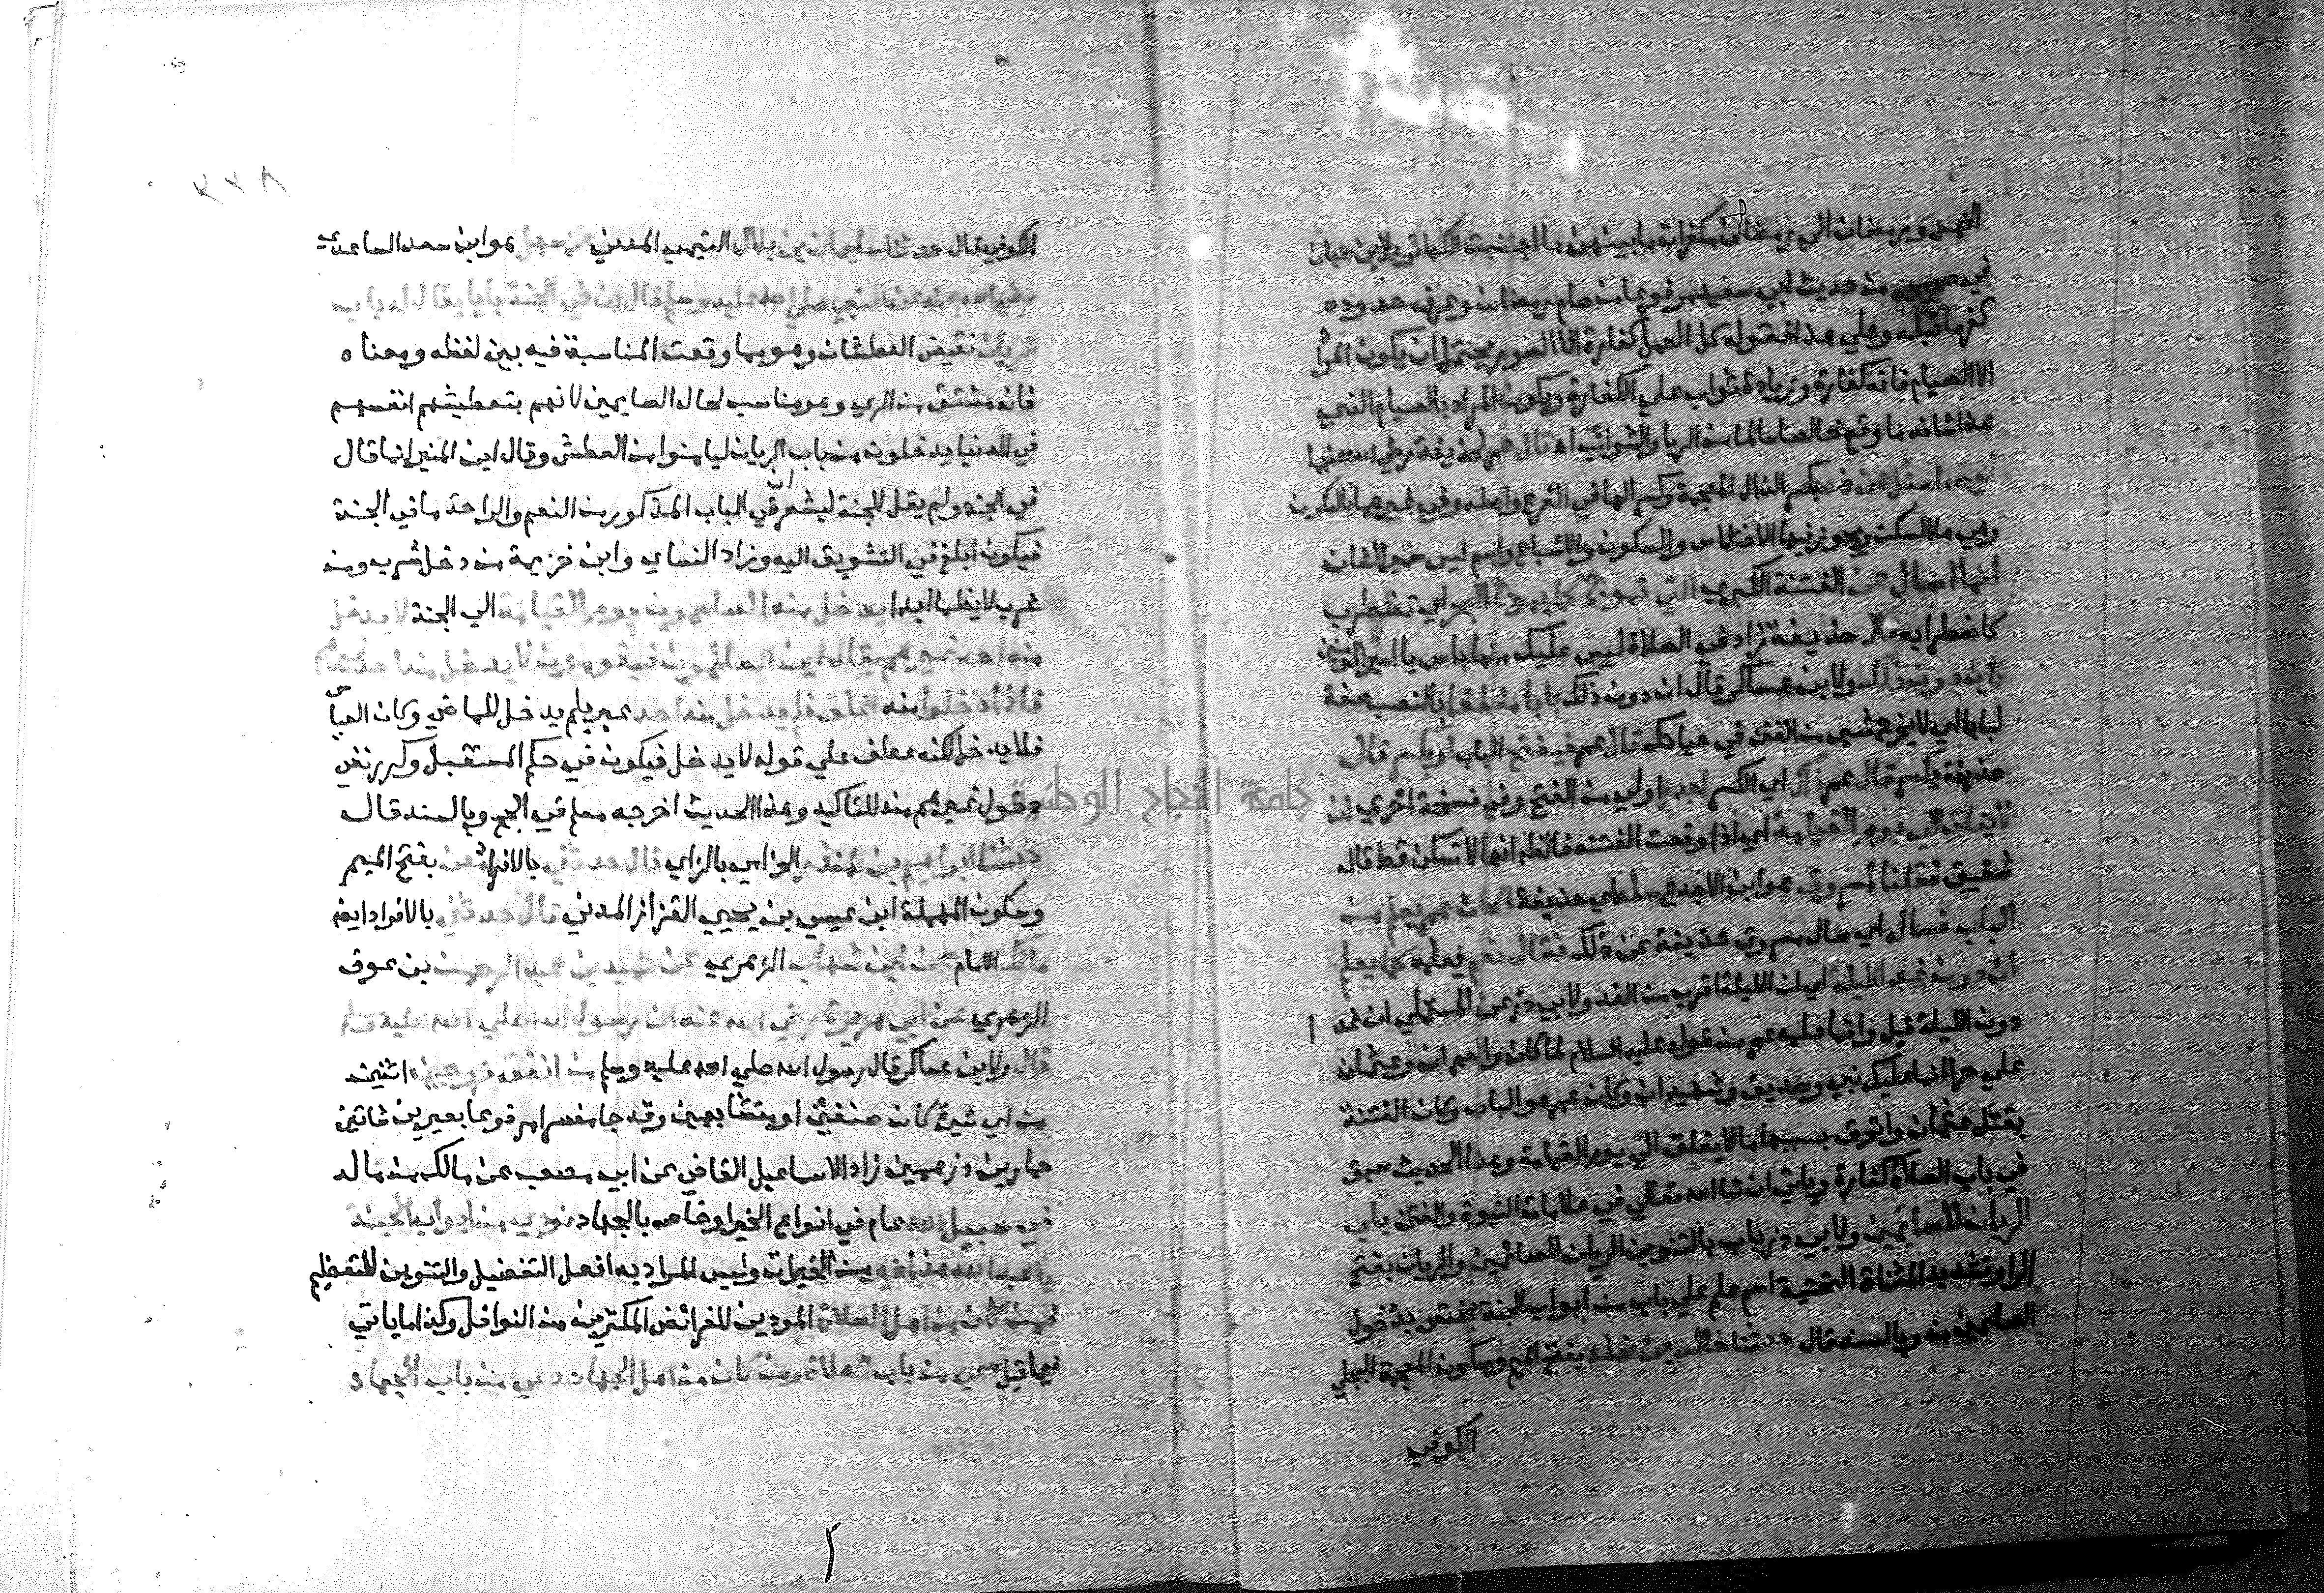 الخمس ورمضان الي رمضان مكفرات ما بينهن ما اجتنبت الكبائر ولابن حبان
في صحيحه من حديث ابي سعيد مرفوعا من صام رمضان وعرف حدوده
كفر ما قبله وعلي هذا فقوله كل العمل كفارة الا الصوم يحتمل ان يكون المراد
الا الصيام فانه كفارة وزيادة ثواب علي الكفارة ويكون المراد بالصيام الذي
هذا شانه ما وقع خالصا سالما من الريا والشوائب اه قال عمر لحذيفة رضي الله عنهما
ليس اسئل عن ذه بكسر الذال المعجمة وكسر الها في الفرع واصله وفي غيرهما بالسكون
وهي ها السكت ويجوز فيها الاختلاس والسكون والاشباع واسم ليس ضمير الشان
انما اسال عن الفتنة الكبري التي تموج كما يموج البحر اي تضطرب
كاضطرابه قال حذيفة زاد في الصلاة ليس عليك منها باس يا امير المومنين
وان دون ذلك ولابن عساكر قال ان دون ذلك بابا مغلقا بالنصب صفة
لبابا اي لا يخرج شي من الفتن في حياتك قال عمر فيفتح الباب او يكسر قال
حذيفة يكسر قال عمر ذاك اي الكسر اجدر اولي من الفتح وفي نسخة اخري ان
لا يغلق الي يوم القيامة اي اذا وقعت الفتنة فالظاهر انها لا تسكن قط قال
شقيق فقلنا لمسروق هو ابن الاجدع سله اي حذيفة اكان عمر يعلم من
الباب فساله اي سال مسروق حذيفة عن ذلك فقال نعم يعلمه كما يعلم
ان دون غد الليلة اي ان الليلة اقرب من الغد ولابي ذر عن المستملي ان غدا
دون الليلة قيل وانما علمه عمر من قوله عليه السلام لما كان والعمران وعثمان
علي حرا انما عليك نبي وصديق وشهيدان وكان عمر هو الباب وكان الفتنة
بقتل عثمان وانخرق بسببها ما لا يغلق الي يوم القيامة وهذا الحديث سبق
في باب الصلاة كفارة وياتي ان شا الله تعالي في علامات النبوة والفتن باب
الريان للصايمين ولابي ذر باب بالتنوين الريان للصائمين والريان بفتح
الرا وتشديد المثناة التحتية اسم علم علي باب من ابواب الجنة يختص بدخول
الصايمين منه وبالسند قال حدثنا خالد بن مخلد بفتح الميم وسكون المعجمة البجلي
الكوفي
٢٢٨
الكوفي قال حدثنا سليمان بن بلال التيمي المدني عن سهل هو ابن سعد الساعدي
رضي الله عنه عن النبي صلي الله عليه وسلم قال ان في الجنة بابا يقال له باب
الريان نقيض العطشان وهو مما وقعت المناسبة فيه بين لفظه ومعناه
فانه مشتق من الري وهو مناسب لحال الصايمين لانهم بتعطيشهم انفسهم
في الدنيا يدخلون من باب الريان ليامنوا من العطش وقال ابن المنير انما قال
في الجنة ولم يقل للجنة ليشعر ان في الباب المذكور من النعيم والراحة ما في الجنة
فيكون ابلغ في التشويق اليه وزاد النساي وابن خزيمة من دخل شرب ومن
شرب لا يظما ابدا يدخل منه الصايمون يوم القيامة الي الجنة لا يدخل
منه احد غيرهم يقال اين الصائمون فيقومون لا يدخل منه احد غيرهم
فاذا دخلوا منه اغلق فلم يدخل منه احد عبر بلم يدخل للماضي وكان القياس
فلا يدخل لكنه عطف علي قوله لا يدخل فيكون في حكم المستقبل وكرر نفي
دخول غيرهم منه للتاكيد وهذا الحديث اخرجه مسلم في الحج وبالسند قال
حدثنا ابراهيم بن المنذر الحزامي بالزاي قال حدثني بالافراد معن بفتح الميم
وسكون المهملة ابن عيسي بن يحيي القزاز المدني قال حدثني بالافراد ايضا
مالك الامام عن ابن شهاب الزهري عن حميد بن عبد الرحمن بن عوف
الزهري عن ابي هريرة رضي الله عنه ان رسول الله صلي الله عليه وسلم
قال ولابن عساكر قال رسول الله صلي الله عليه وسلم من انفق زوجين اثنين
من اي شي كان صنفين او متشابهين وقد جا مفسرا مرفوعا بعيرين شاتين
حمارين درهمين زاد الاسماعيل القاضي عن ابي مصعب عن مالك من ماله
في سبيل الله عام في انواع الخير او خاص بالجهاد نودي من ابواب الجنة
يا عبد الله هذا خير من الخيرات وليس المراد به افعل التفضيل والتنوين للتعظيم
فمن كان من اهل الصلاة المودين للفرائض المكثرين من النوافل وكذا ما ياتي
فيما قيل دعي من باب الصلاة ومن كان من اهل الجهاد دعي من باب الجهاد
جامعة النجاح الوطنية